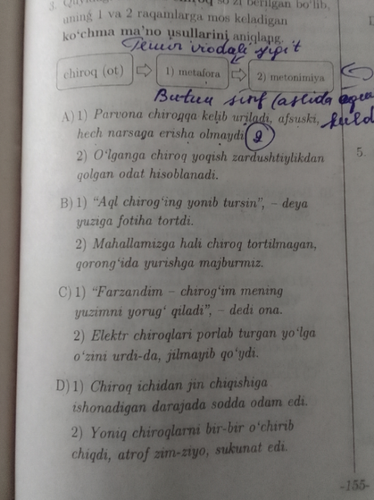 3. Quyidagi so'zi berilgan bo'lib,
uning 1 va 2 raqamlarga mos keladigan
ko'chma ma'no usullarini aniqlang.
Temur irodali yigit
chiroq (ot) 1) metafora 2) metonimiya
Butun sinf (aslida
A) 1) Parvona chiroqqa kelib uriladi, afsuski,
hech narsaga erisha olmaydi. 2
2) O'lganga chiroq yoqish zardushtiylikdan
qolgan odat hisoblanadi.
B) 1) "Aql chirog'ing yonib tursin", – deya
yuziga fotiha tortdi.
2) Mahallamizga hali chiroq tortilmagan,
qorong'ida yurishga majburmiz.
C) 1) "Farzandim – chirog'im mening
yuzimni yorug' qiladi", – dedi ona.
2) Elektr chiroqlari porlab turgan yo'lga
o'zini urdi-da, jilmayib qo'ydi.
D) 1) Chiroq ichidan jin chiqishiga
ishonadigan darajada sodda odam edi.
2) Yoniq chiroqlarni bir-bir o'chirib
chiqdi, atrof zim-ziyo, sukunat edi.
5.
-155-